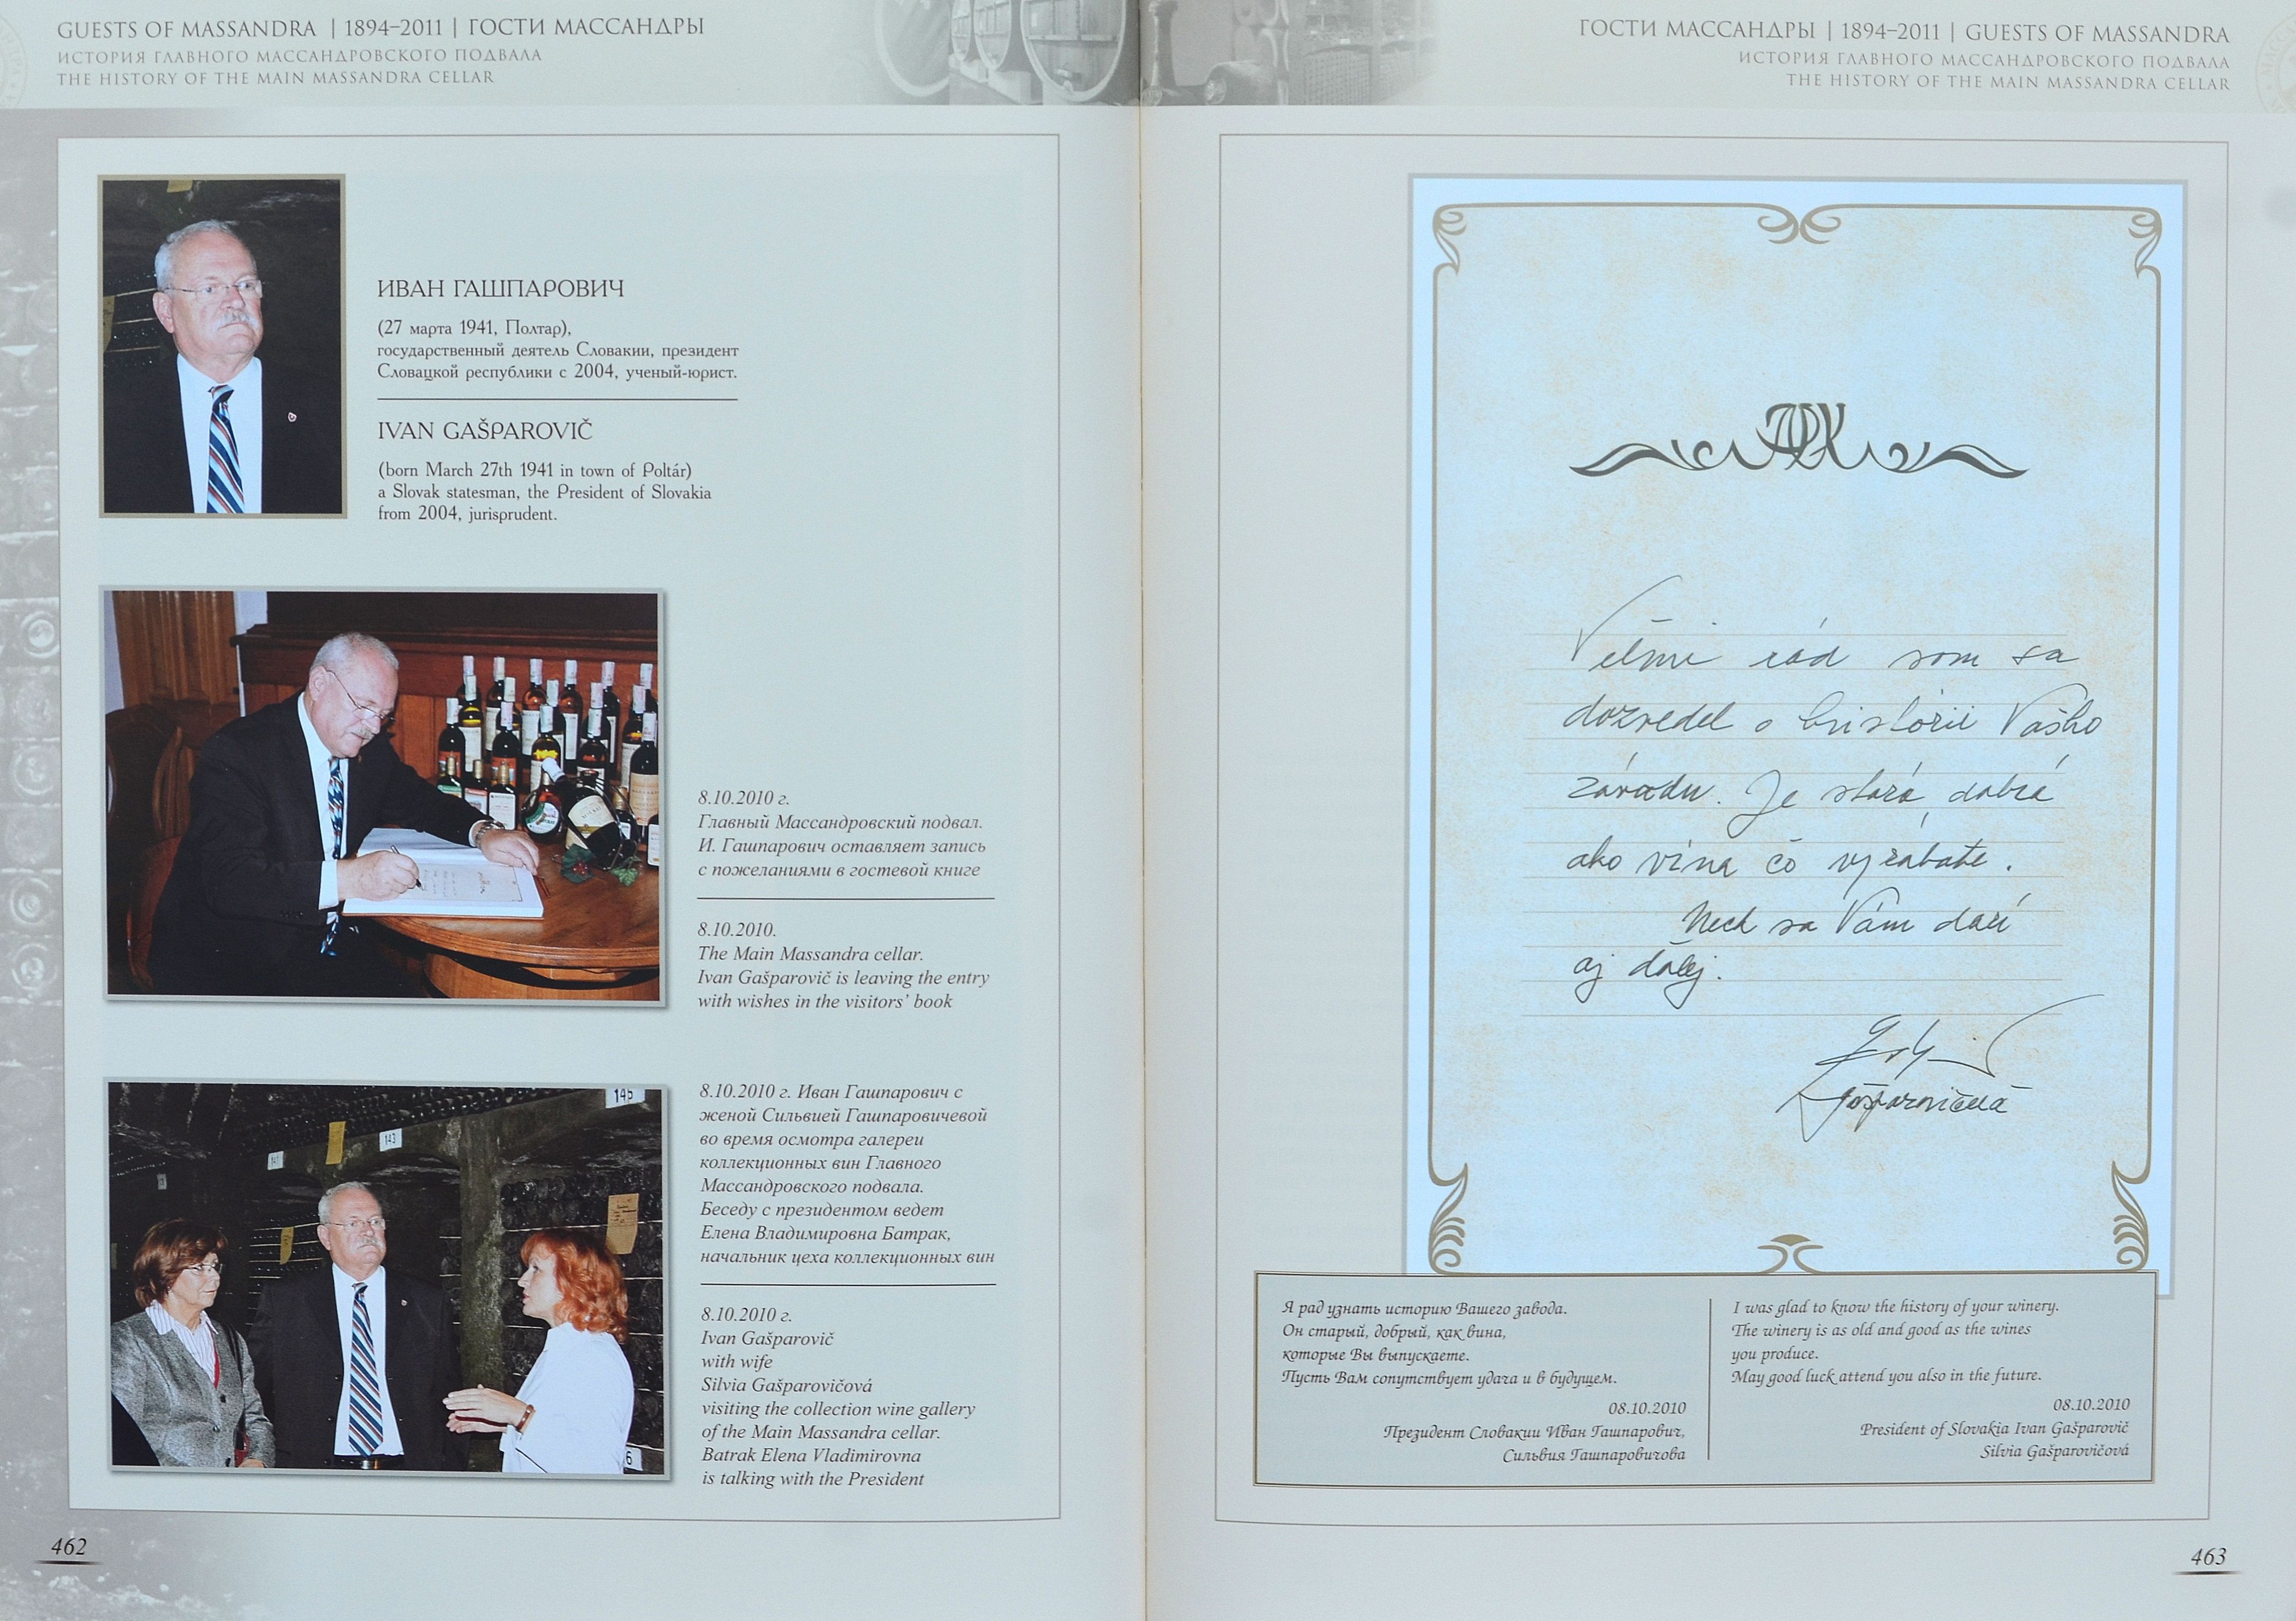 GUESTS OF MASSANDRA | 1894–2011 | ГОСТИ МАССАНДРЫ
ИСТОРИЯ ГЛАВНОГО МАССАНДРОВСКОГО ПОДВАЛА
THE HISTORY OF THE MAIN MASSANDRA CELLAR
ИВАН ГАШПАРОВИЧ
(27 марта 1941, Полтар),
государственный деятель Словакии, президент
Словацкой республики с 2004, ученый-юрист.
IVAN GAŠPAROVIČ
(born March 27th 1941 in town of Poltár)
a Slovak statesman, the President of Slovakia
from 2004, jurisprudent.
8.10.2010 г.
Главный Массандровский подвал.
И. Гашпарович оставляет запись
с пожеланиями в гостевой книге
8.10.2010.
The Main Massandra cellar.
Ivan Gašparovič is leaving the entry
with wishes in the visitors' book
145
143
141
6
8.10.2010 г. Иван Гашпарович с
женой Сильвией Гашпаровичевой
во время осмотра галереи
коллекционных вин Главного
Массандровского подвала.
Беседу с президентом ведет
Елена Владимировна Батрак,
начальник цеха коллекционных вин
8.10.2010 г.
Ivan Gašparovič
with wife
Silvia Gašparovičová
visiting the collection wine gallery
of the Main Massandra cellar.
Batrak Elena Vladimirovna
is talking with the President
462
ГОСТИ МАССАНДРЫ | 1894–2011 | GUESTS OF MASSANDRA
ИСТОРИЯ ГЛАВНОГО МАССАНДРОВСКОГО ПОДВАЛА
THE HISTORY OF THE MAIN MASSANDRA CELLAR
Veľmi rád som sa
dozvedel o histórii Vášho
závodu. Je stará, dobrá
ako vína čo vyrábate.
Nech sa Vám darí
aj ďalej.
Gašparovičová
Я рад узнать историю Вашего завода.
Он старый, добрый, как вина,
которые Вы выпускаете.
Пусть Вам сопутствует удача и в будущем.
08.10.2010
Президент Словакии Иван Гашпарович,
Сильвия Гашпаровичова
I was glad to know the history of your winery.
The winery is as old and good as the wines
you produce.
May good luck attend you also in the future.
08.10.2010
President of Slovakia Ivan Gašparovič
Silvia Gašparovičová
463